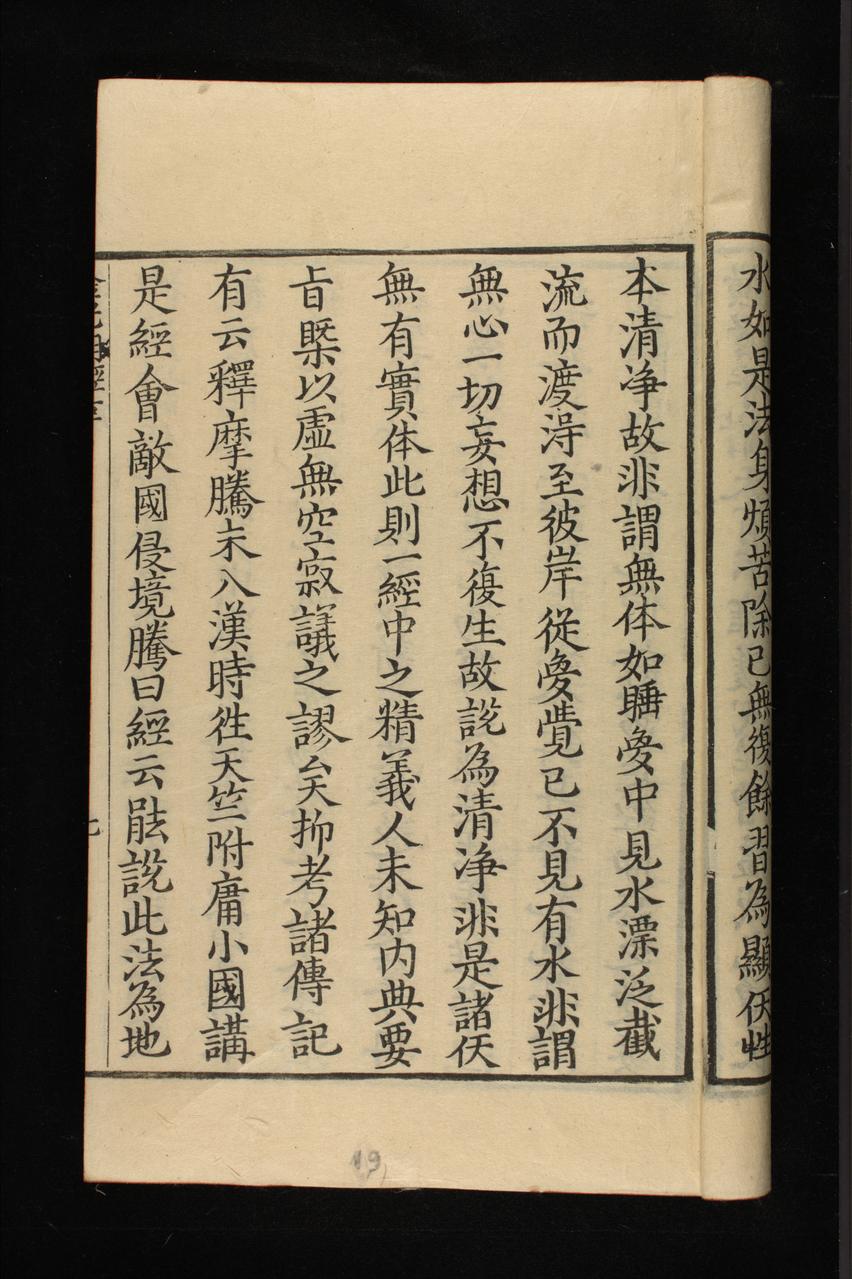 水如是法身煩苦除已無復餘習為顯仸性
本清净故非謂無体如睡夣中見水漂泛截
流而渡淂至彼岸從夣覺已不見有水非謂
無心一切妄想不復生故說為清净非是諸仸
無有實体此則一經中之精義人未知内典要
㫖槩以虛無空寂議之謬矣抑考諸傳記
有云釋摩騰未入漢時徃天竺附庸小國講
是經會敵國侵境騰曰經云能說此法為地
19